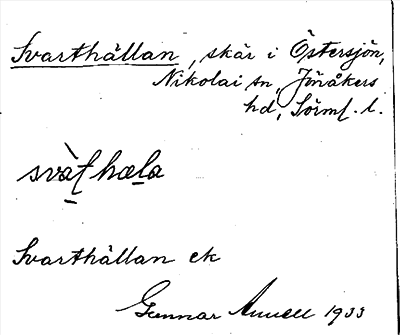 Svarthällan, skär i Östersjön,
Nikolai sn, Jönåkers
hd, Sörml. l.
svàʈhæla
Svarthällan ek
Gunnar Annell 1933